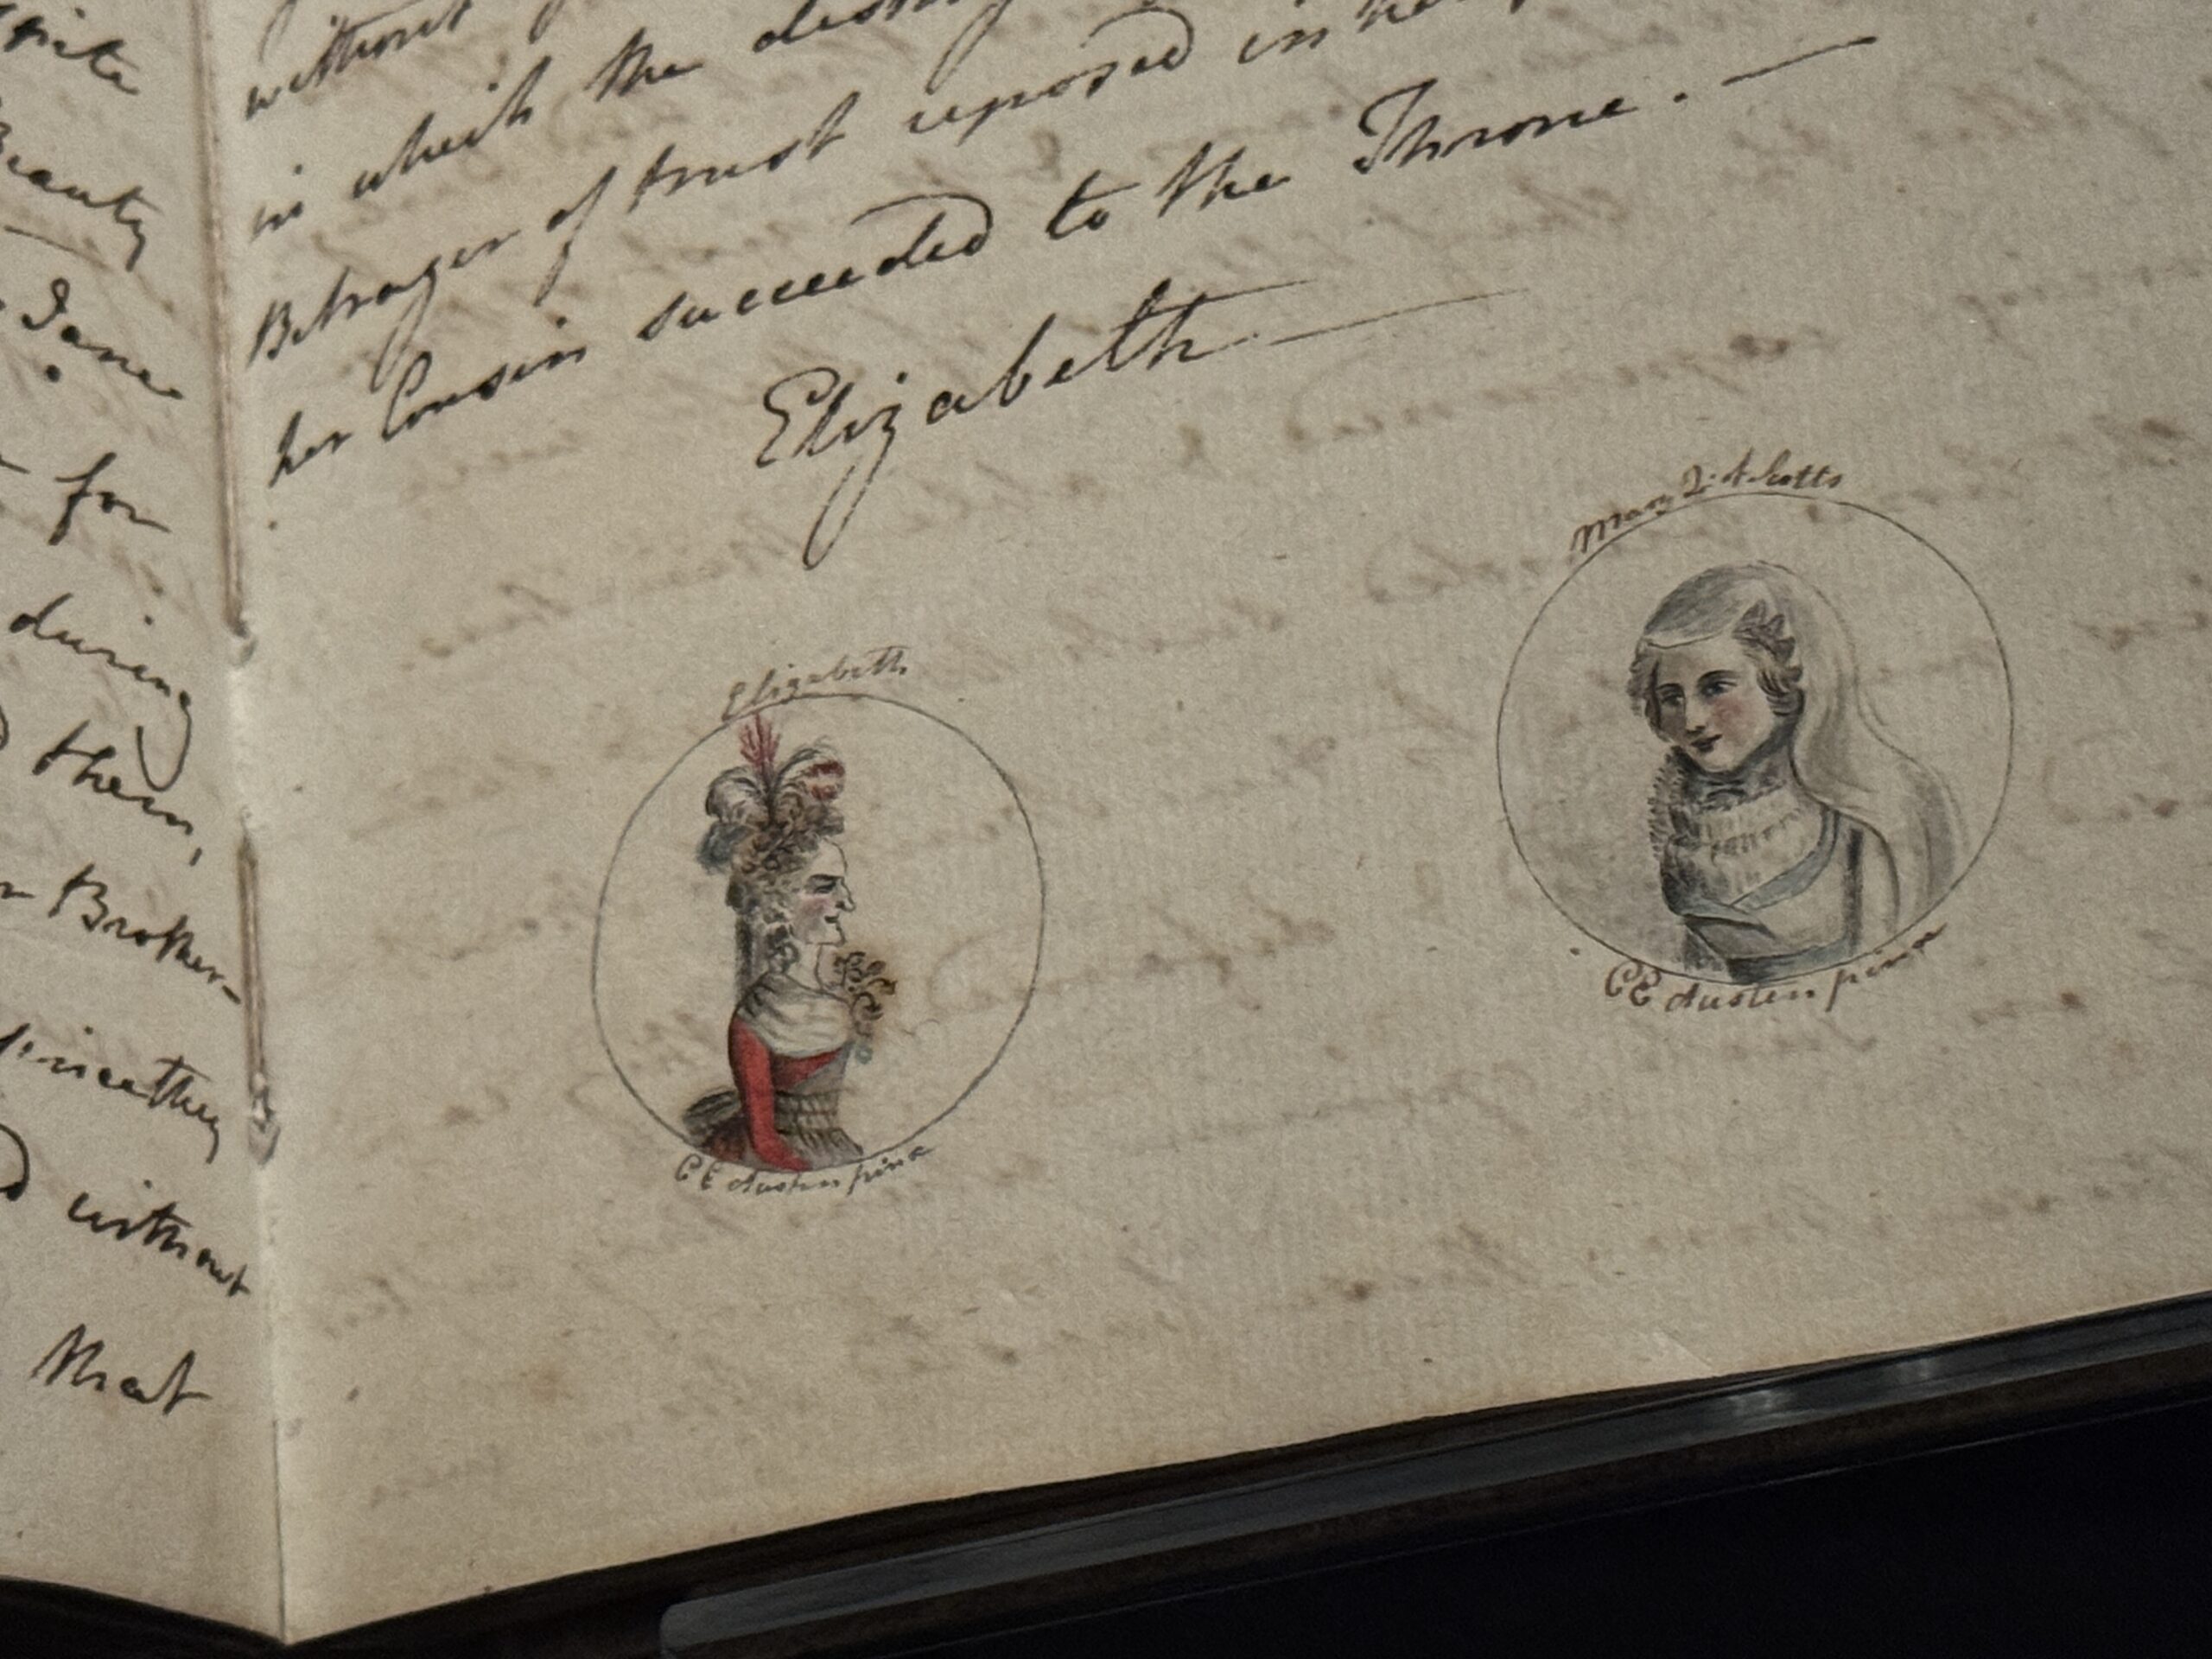 Beauty
Jane
for
during
them,
Brother-
without
that
without
in which the
Betrayer of trust reposed in her
her Cousin succeeded to the Throne. —
Elizabeth —
Elizabeth
C E Austen pinx
Mary Q. of Scotts
C E Austen pinx